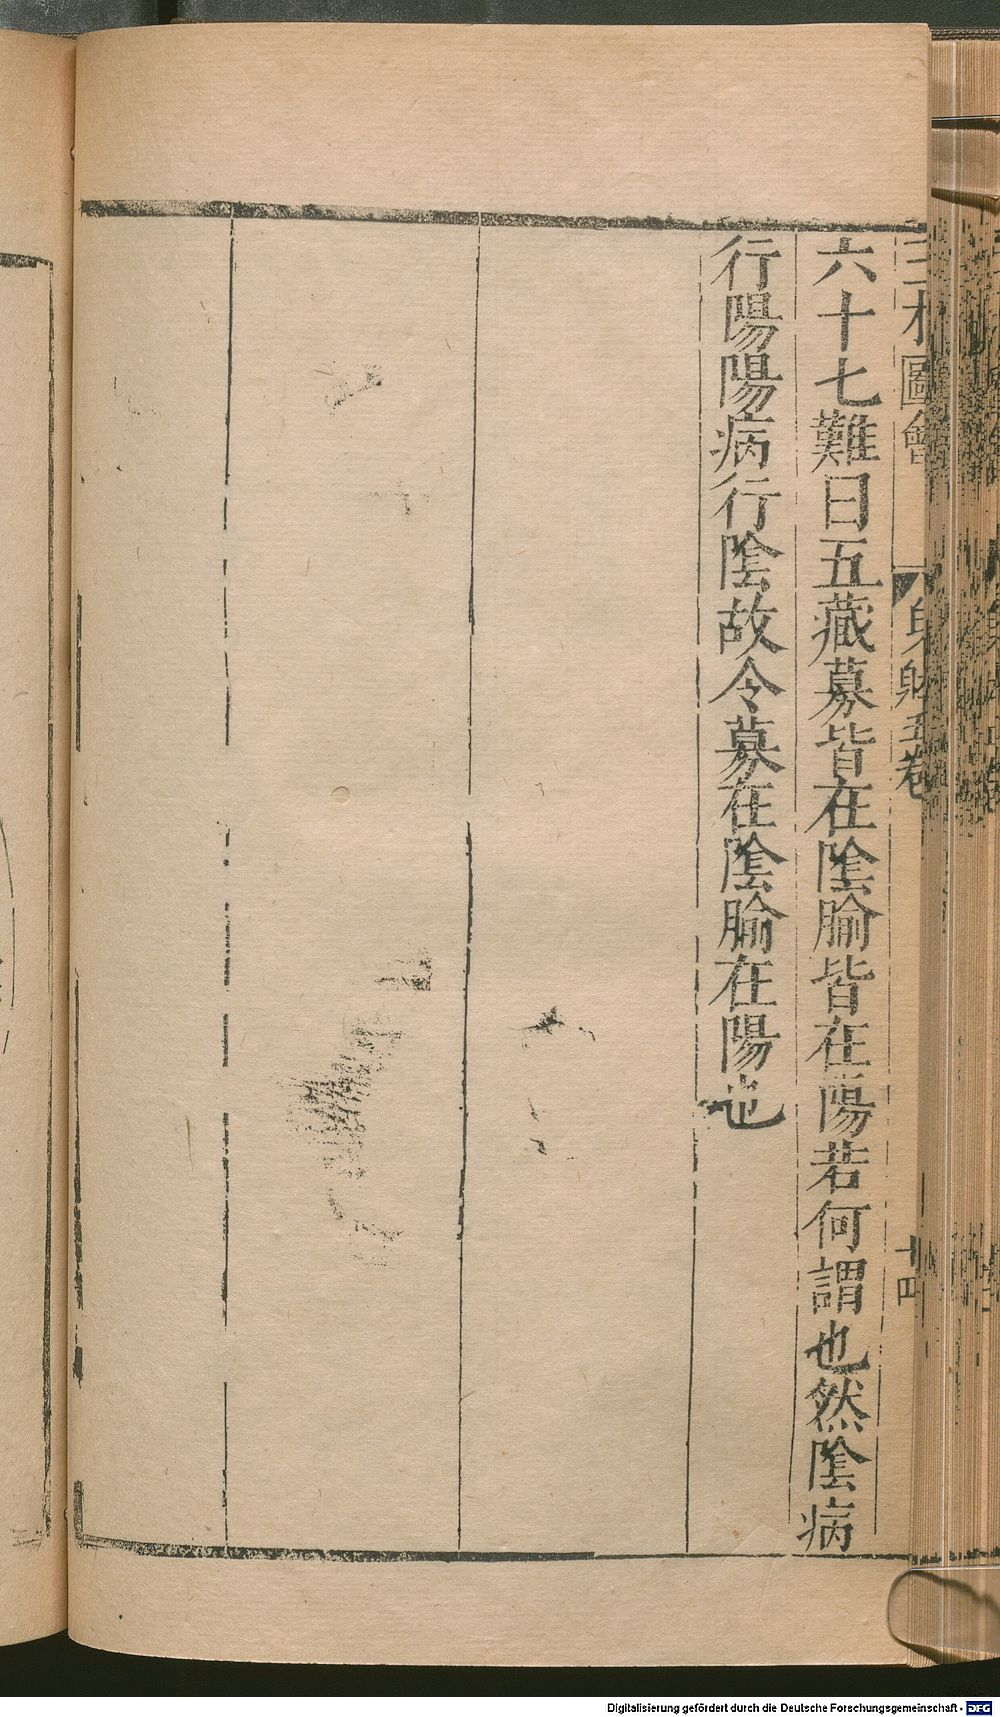 三才圖會 身體五卷 十四
六十七難曰五藏募皆在陰腧皆在陽若何謂也然陰病
行陽陽病行陰故令募在陰腧在陽也
Digitalisierung gefördert durch die Deutsche Forschungsgemeinschaft - DFG